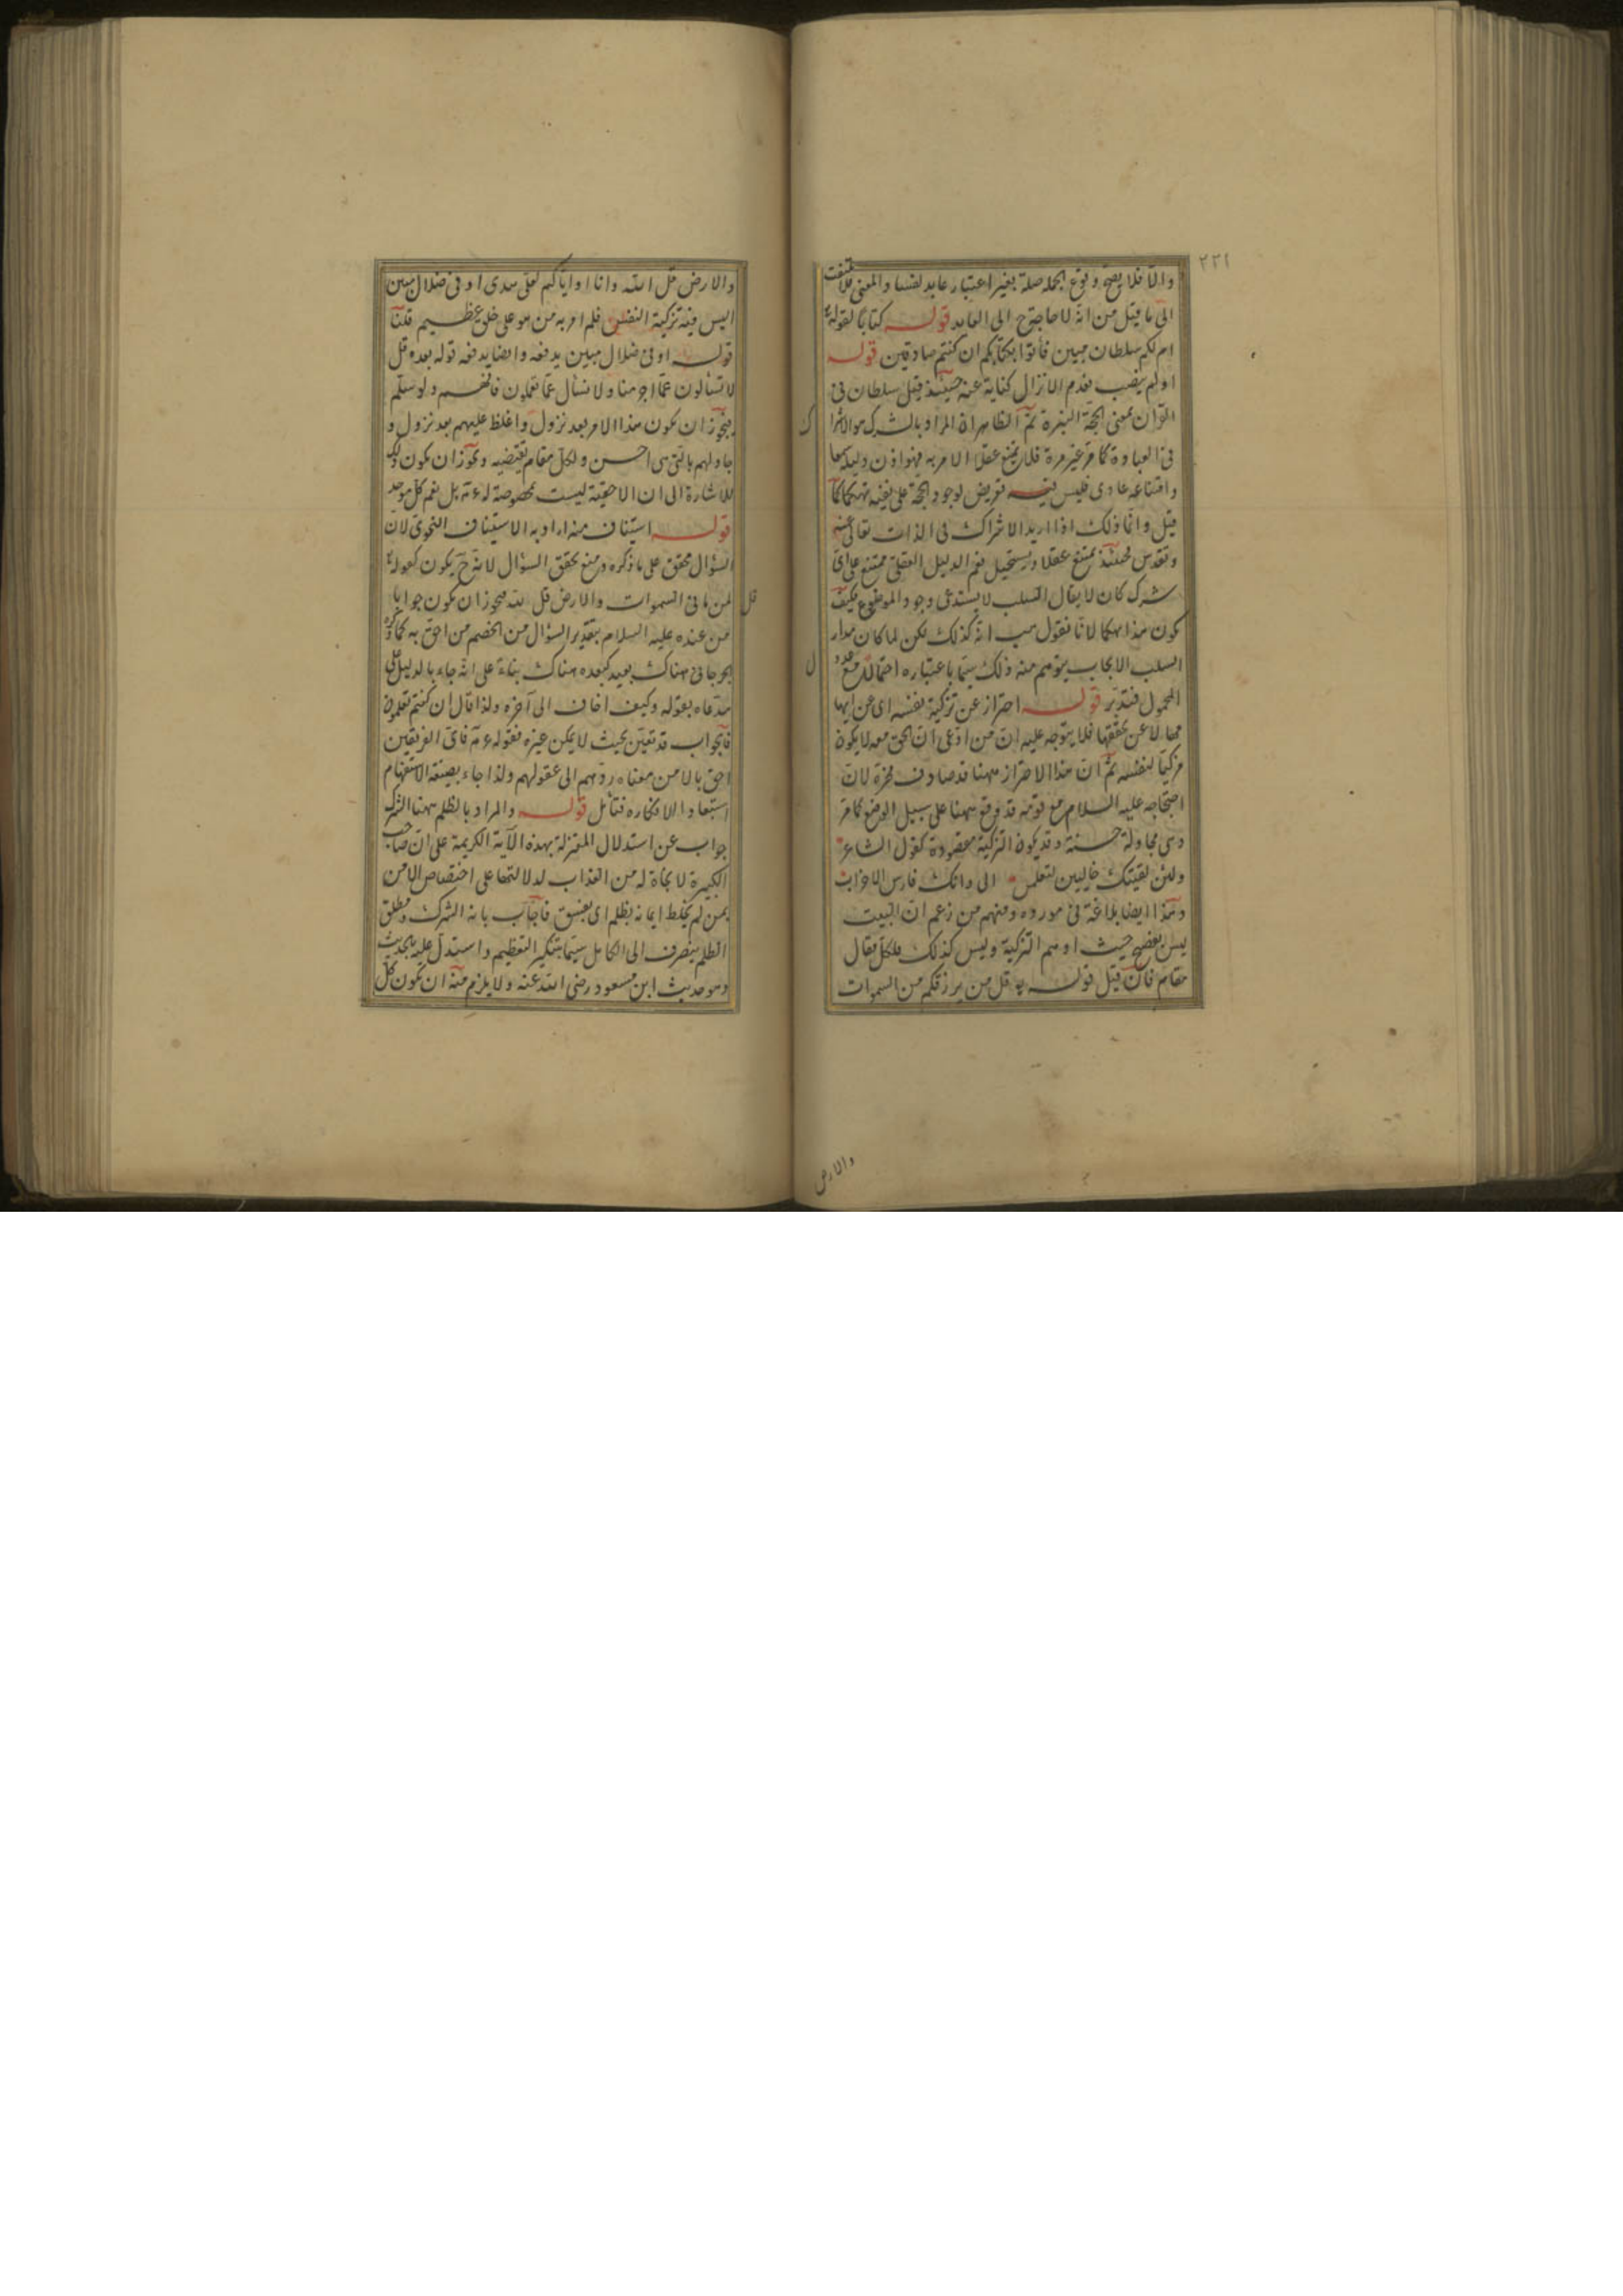 ٢٢١
والا فلا يصح وقوع الجملة صلة بغير اعتبار عايد لفسا والمعنى فلا يلتفت
الى ما قيل من انه لا حاجة ح الى العايد قوله كتابا لقوله تع
ام لكم سلطان مبين فأتوا بكتابكم ان كنتم صادقين قوله
او لم ينصب فعدم الانزال كناية عنه حينئذ قيل سلطان في
القرآن بمعنى الحجة النيرة ثم الظاهر ان المراد بالشرك هو الاشرا
ك
في العبادة كما مر غير مرة فلان يمتنع عقلا الامر به فهو اذن دليله سمعا
وامتناعه عادي فليس فيه تعريض لوجود الحجة على نفيه تهكما كما
قيل وانما ذلك اذا اريد الاشراك في الذات تعالى عنه
وتقدس فحينئذ يمتنع عقلا ويستحيل نعم الدليل العقلي ممتنع على اي
شرك كان لا يقال السلب لا يستدعي وجود الموضوع فكيف
يكون هذا تهكما لانا نقول هب انه كذلك لكن لما كان مدار
السلب الايجاب يتوهم منه ذلك سيما باعتباره احتمالا مع عدو
ل
المحمول فتدبر قوله احتراز عن تزكية نفسه اي عن ايها
مها لا عن تحققها فلا يتوجه عليه ان من ادعى ان الحق معه لا يكون
مزكيا لنفسه ثم ان هذا الاحتراز ههنا قد صادف محزه لان
احتجاجه عليه السلام مع قومه قد وقع ههنا على سبيل الوضع كما مر
وهي مجادلة حسنة وقد يكون التزكية مقصودة كقول الشاعر
ولئن لقيتك خاليين لتعلمن الى وانك فارس الاحزاب
وهذا ايضا بلاغة في مورده ومنهم من زعم ان البيت
ليس بفصيح حيث اوهم التزكية وليس كذلك فلكل مقال
مقام فان قيل قوله تع قل من يرزقكم من السموات
والارض
والارض قل الله وانا او اياكم لعلى هدى او في ضلال مبين
اليس فيه تزكية النفس فلم امر به من هو على خلق عظيم قلنا
قوله او في ضلال مبين يدفعه وايضا يدفعه قوله بعده قل
لا تسألون عما اجرمنا ولا نسأل عما تعملون فافهم ولو سلم
فيجوز ان يكون هذا الامر بعد نزول واغلظ عليهم بعد نزول و
جادلهم بالتي هي احسن ولكل مقام يقتضيه ويجوز ان يكون ذلك
للاشارة الى ان الاحقية ليست بمخصوصة له ع م بل نعم كل موحد
قوله استيناف منه اراد به الاستيناف النحوي لان
السؤال محقق على ما ذكره ومنع تحقق السؤال لانه ح يكون كقوله تع
قل
لمن ما في السموات والارض قل لله فيجوز ان يكون جوابا
من عنده عليه السلام بتقدير السؤال من الخصم من احق به كما ذكره
الجرجاني هناك بعيد كبعده هناك بناءً على انه جاء بالدليل على
مدعاه بقوله وكيف اخاف الى آخره ولذا قال ان كنتم تعلمون
فالجواب قد تعين بحيث لا يمكن غيره فقوله ع م فاي الفريقين
احق بالامن معناه ردهم الى عقولهم ولذا جاء بصيغة الاستفهام
استبعادا لانكاره فتأمل قوله والمراد بالظلم ههنا الشرك
جواب عن استدلال المعتزلة بهذه الآية الكريمة على ان صاحب
الكبيرة لا نجاة له من العذاب لدلالتها على اختصاص الامن
بمن لم يخلط ايمانه بظلم اي بفسق فاجاب بانه الشرك ومطلق
الظلم ينصرف الى الكامل سيما بتنكير التعظيم واستدل عليه بالحديث
وهو حديث ابن مسعود رضى الله عنه ولا يلزم منه ان يكون كل